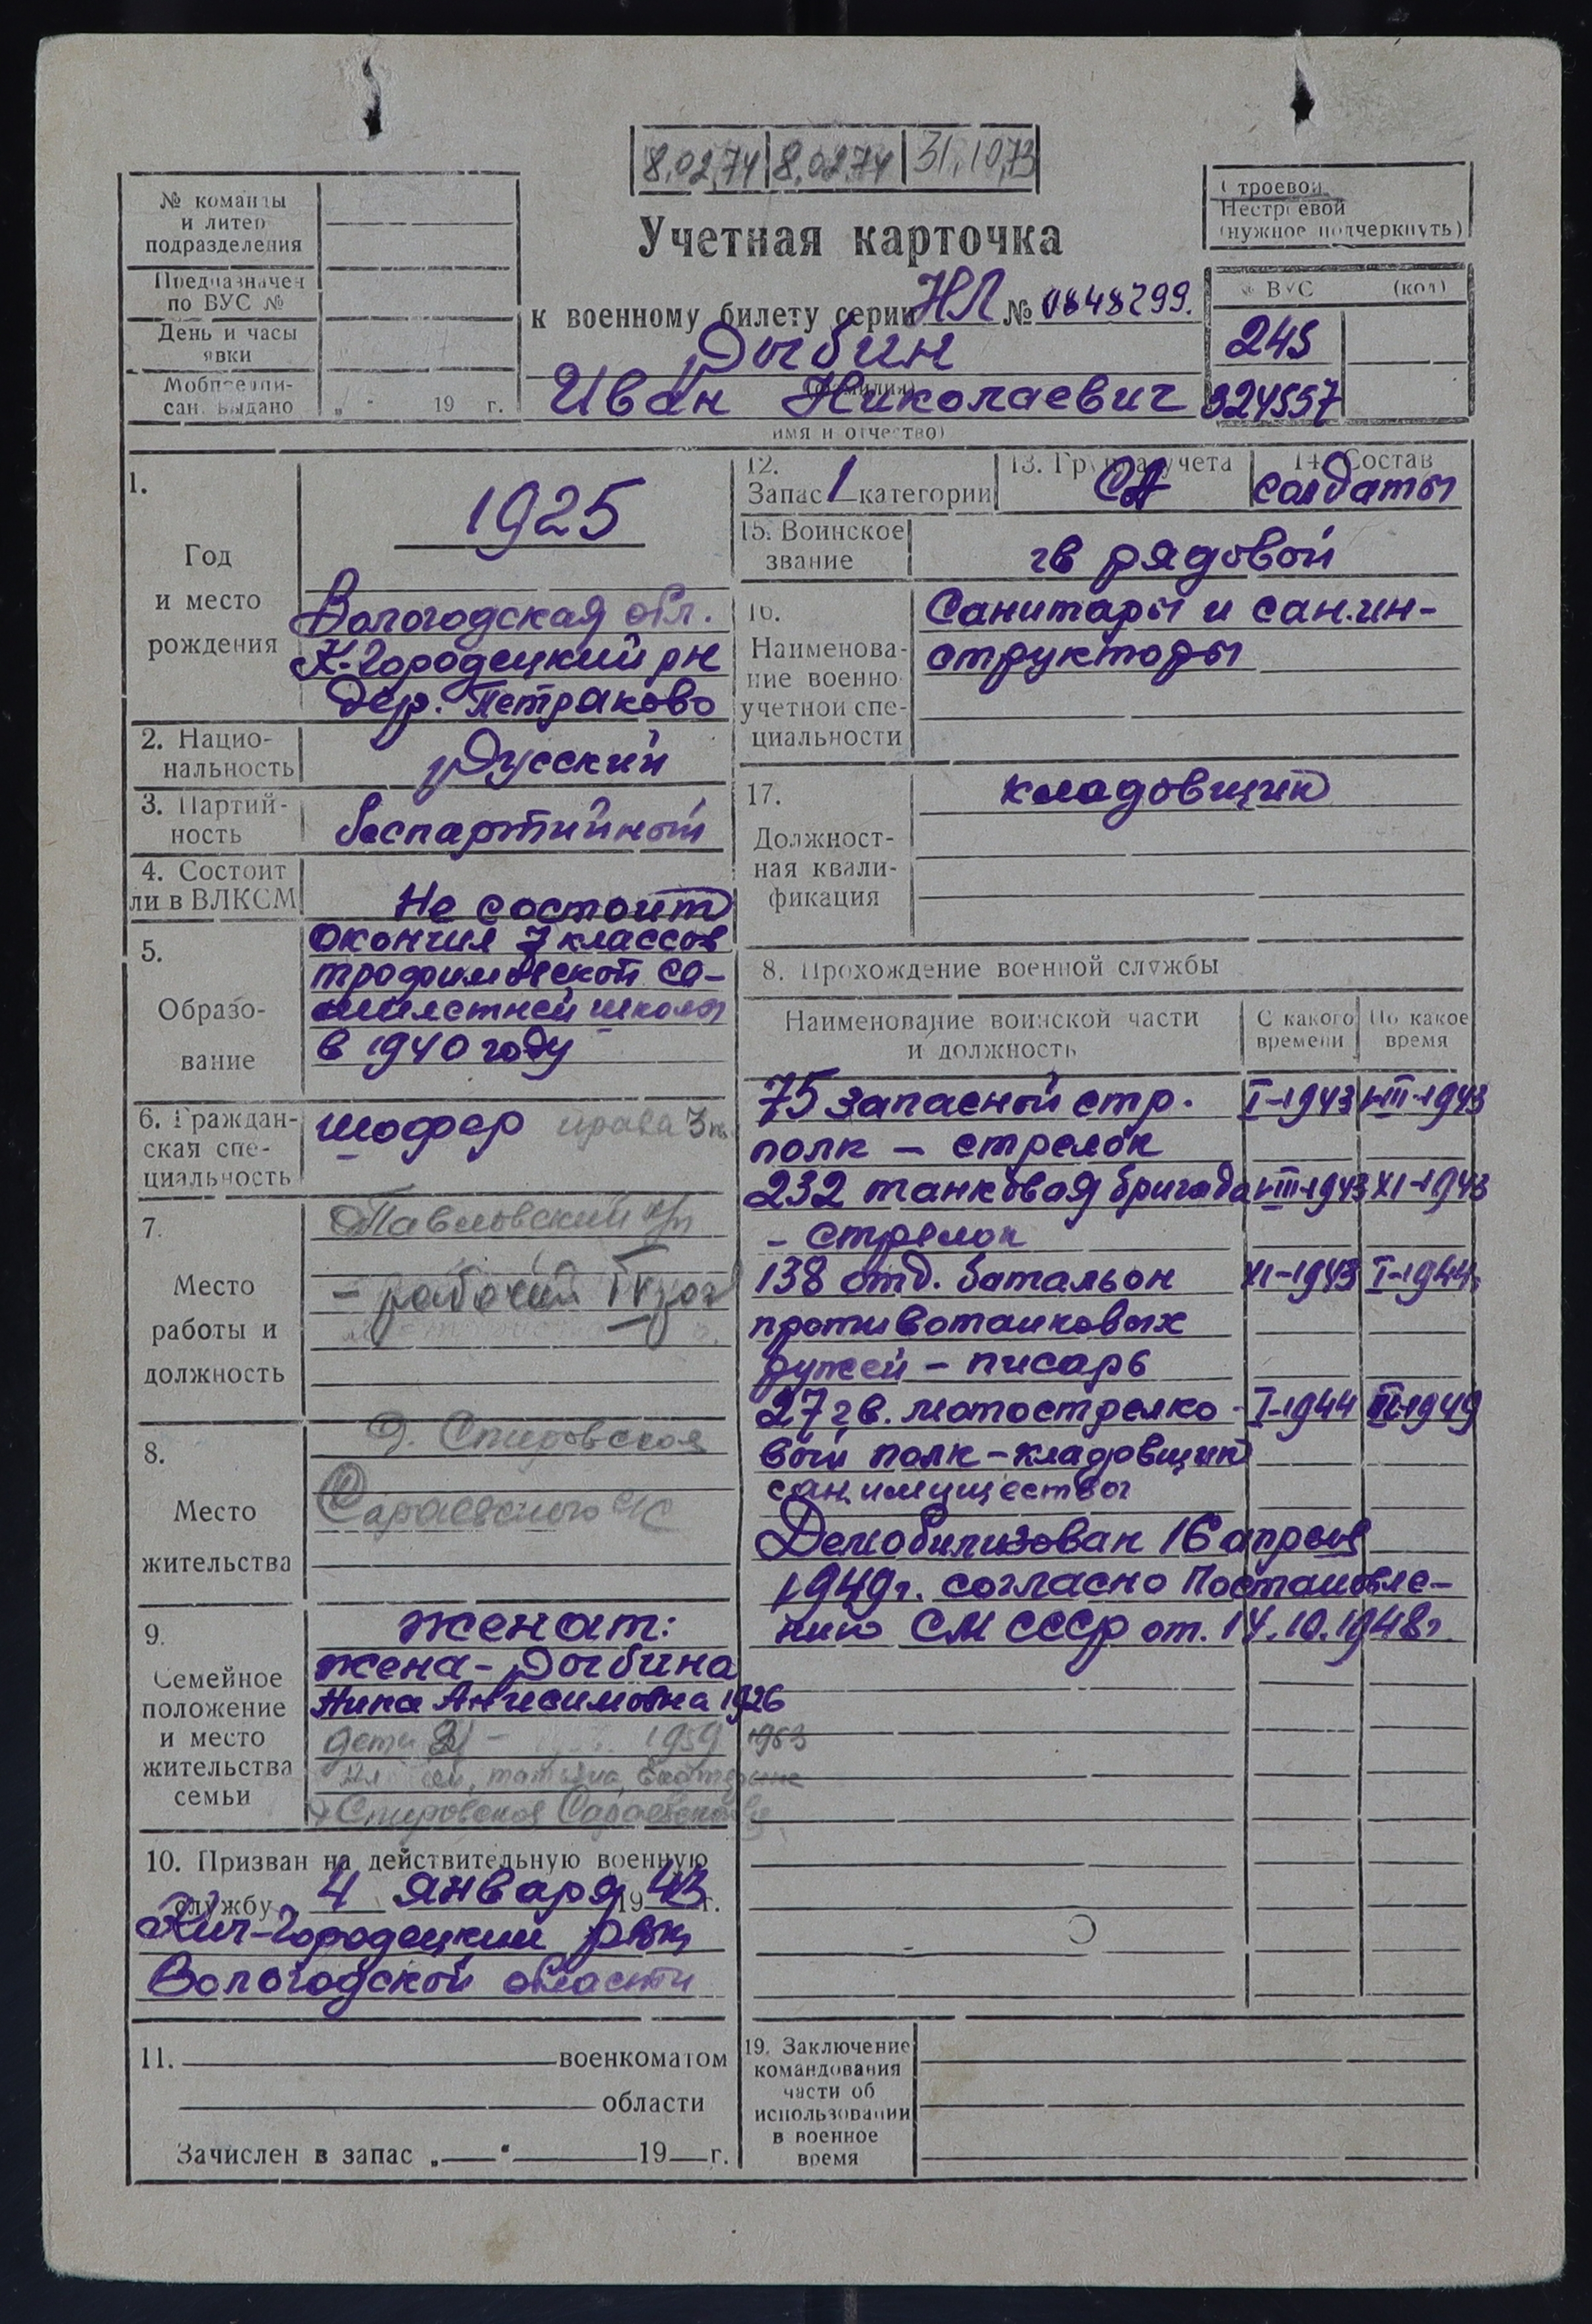 8.02.74 8.02.74 31.10.73
№ команды
и литер
подразделения
Предназначен
по ВУС №
День и часы
явки
Мобпредпи-
сан. выдано „ “ 19 г.
Учетная карточка
к военному билету серии НЛ № 0848299.
Рыбин
(фамилия)
Иван Николаевич
имя и отчество)
Строевой
Нестроевой
(нужное подчеркнуть)
№ ВУС (код)
245
924557
1.
Год
и место
рождения
1925
Вологодская обл.
К-Городецкий рн
дер. Петраково
2. Нацио-
нальность
Русский
3. Партий-
ность
беспартийный
4. Состоит
ли в ВЛКСМ
Не состоит
5.
Образо-
вание
Окончил 7 классов
трофимовской се-
милетней школы
в 1940 году
6. Граждан-
ская спе-
циальность
шофер права 3 кл.
7.
Место
работы и
должность
Павловский
- рабочий
8.
Место
жительства
д. Спировская
Сараевского с/с
9.
Семейное
положение
и место
жительства
семьи
женат:
жена - Рыбина
Нина Анисимовна 1926
дети - 1959 1963
татьяна, Екатерина
Спировская Сараевского
10. Призван на действительную военную
службу 4 января 1943 г.
Кич-Городецким рвк
Вологодской области
11. военкоматом
области
Зачислен в запас „ “ 19 г.
12.
Запас 1 категории
13. Группа учета
СА
14. Состав
солдаты
15. Воинское
звание
гв рядовой
16.
Наименова-
ние военно
учетной спе-
циальности
Санитары и сан.ин-
структоры
17.
Должност-
ная квали-
фикация
кладовщик
8. Прохождение военной службы
Наименование воинской части
и должность
С какого
времени
По какое
время
75 запасной стр. I-1943 III-1943
полк - стрелок
232 танковая бригада III-1943 XI-1943
- стрелок
138 отд. батальон XI-1943 I-1944
противотанковых
ружей - писарь
27 гв. мотострелко- I-1944 1949
вый полк - кладовщик
сан.имущества
Демобилизован 16 апреля
1949г. согласно Постановле-
нию СМ СССР от. 14.10.1948г.
19. Заключение
командования
части об
использовании
в военное
время